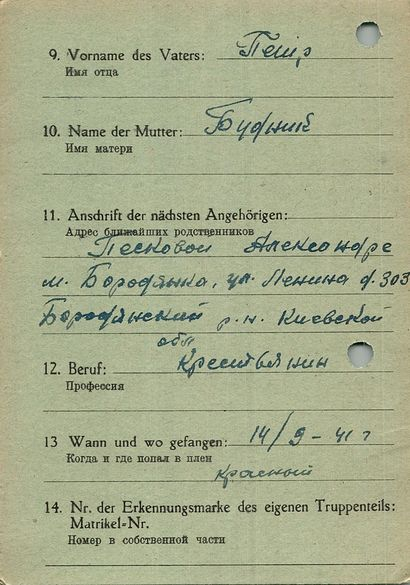 9. Vorname des Vaters: Петр
Имя отца
10. Name der Mutter: Будний
Имя матери
11. Anschrift der nächsten Angehörigen:
Адрес ближайших родственников
Песковой Александре
м. Бородянка, ул. Ленина д. 303
Бородянский р.н. Киевской
обл
12. Beruf: Крестьянин
Профессия
13 Wann und wo gefangen: 14/9 – 41 г
Когда и где попал в плен
Красный
14. Nr. der Erkennungsmarke des eigenen Truppenteils:
Matrikel-Nr.
Номер в собственной части